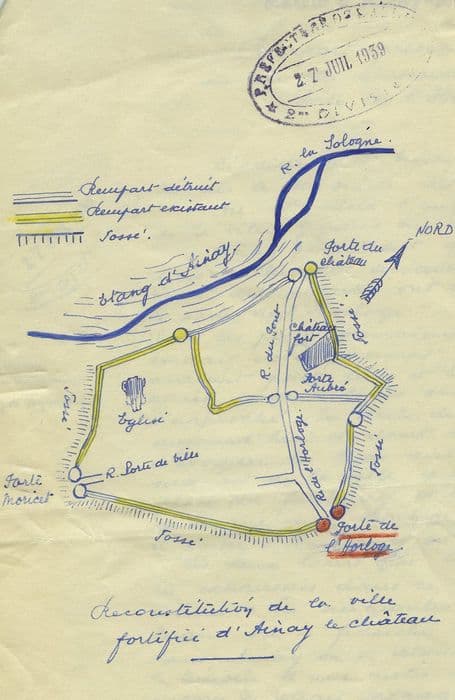 PREFECTURE DE L'ALLIER
27 JUIL 1939
★ 2me DIVISION
R. la Sologne.
Rempart détruit
Rempart existant
Fossé.
NORD
Étang d'Ainay
Porte du
Château
Fossé
R. du Pont
Château
fort
Porte
Aubré
Fossé
Église
R. Porte de ville
Porte
Moricet
R. de l'Horloge
Fossé
Fossé
Porte de
l'Horloge
Reconstitution de la ville
fortifiée d'Ainay le château